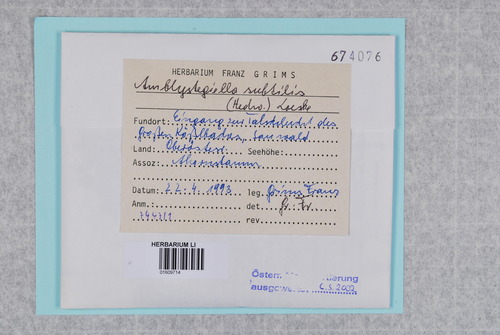 674076
HERBARIUM FRANZ GRIMS
Amblystegiella subtilis
(Hedw.) Loeske
Fundort: Eingang zur Talschlucht des
großen Kößlbaches, Sauwald
Land: Oberösterr. Seehöhe:
Assoz: Ahornstamm
Datum: 22.4.1993 leg. Grims Franz
Anm. det. Gr. Fr.
744711 rev.
HERBARIUM LI
01609714
Österr.
ausgewe